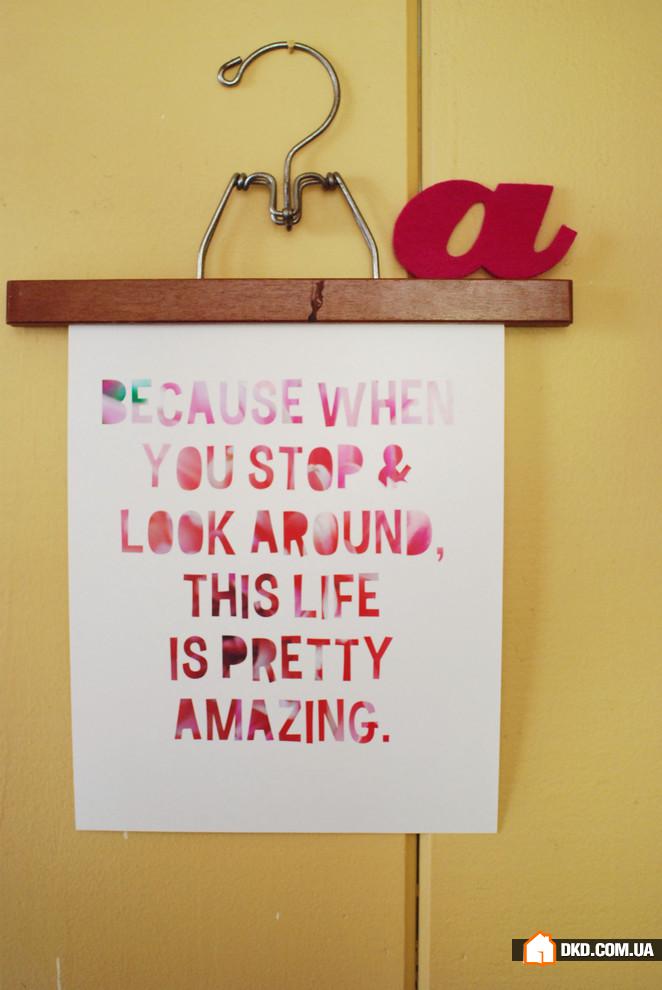 a
BECAUSE WHEN
YOU STOP &
LOOK AROUND,
THIS LIFE
IS PRETTY
AMAZING.
DKD.COM.UA